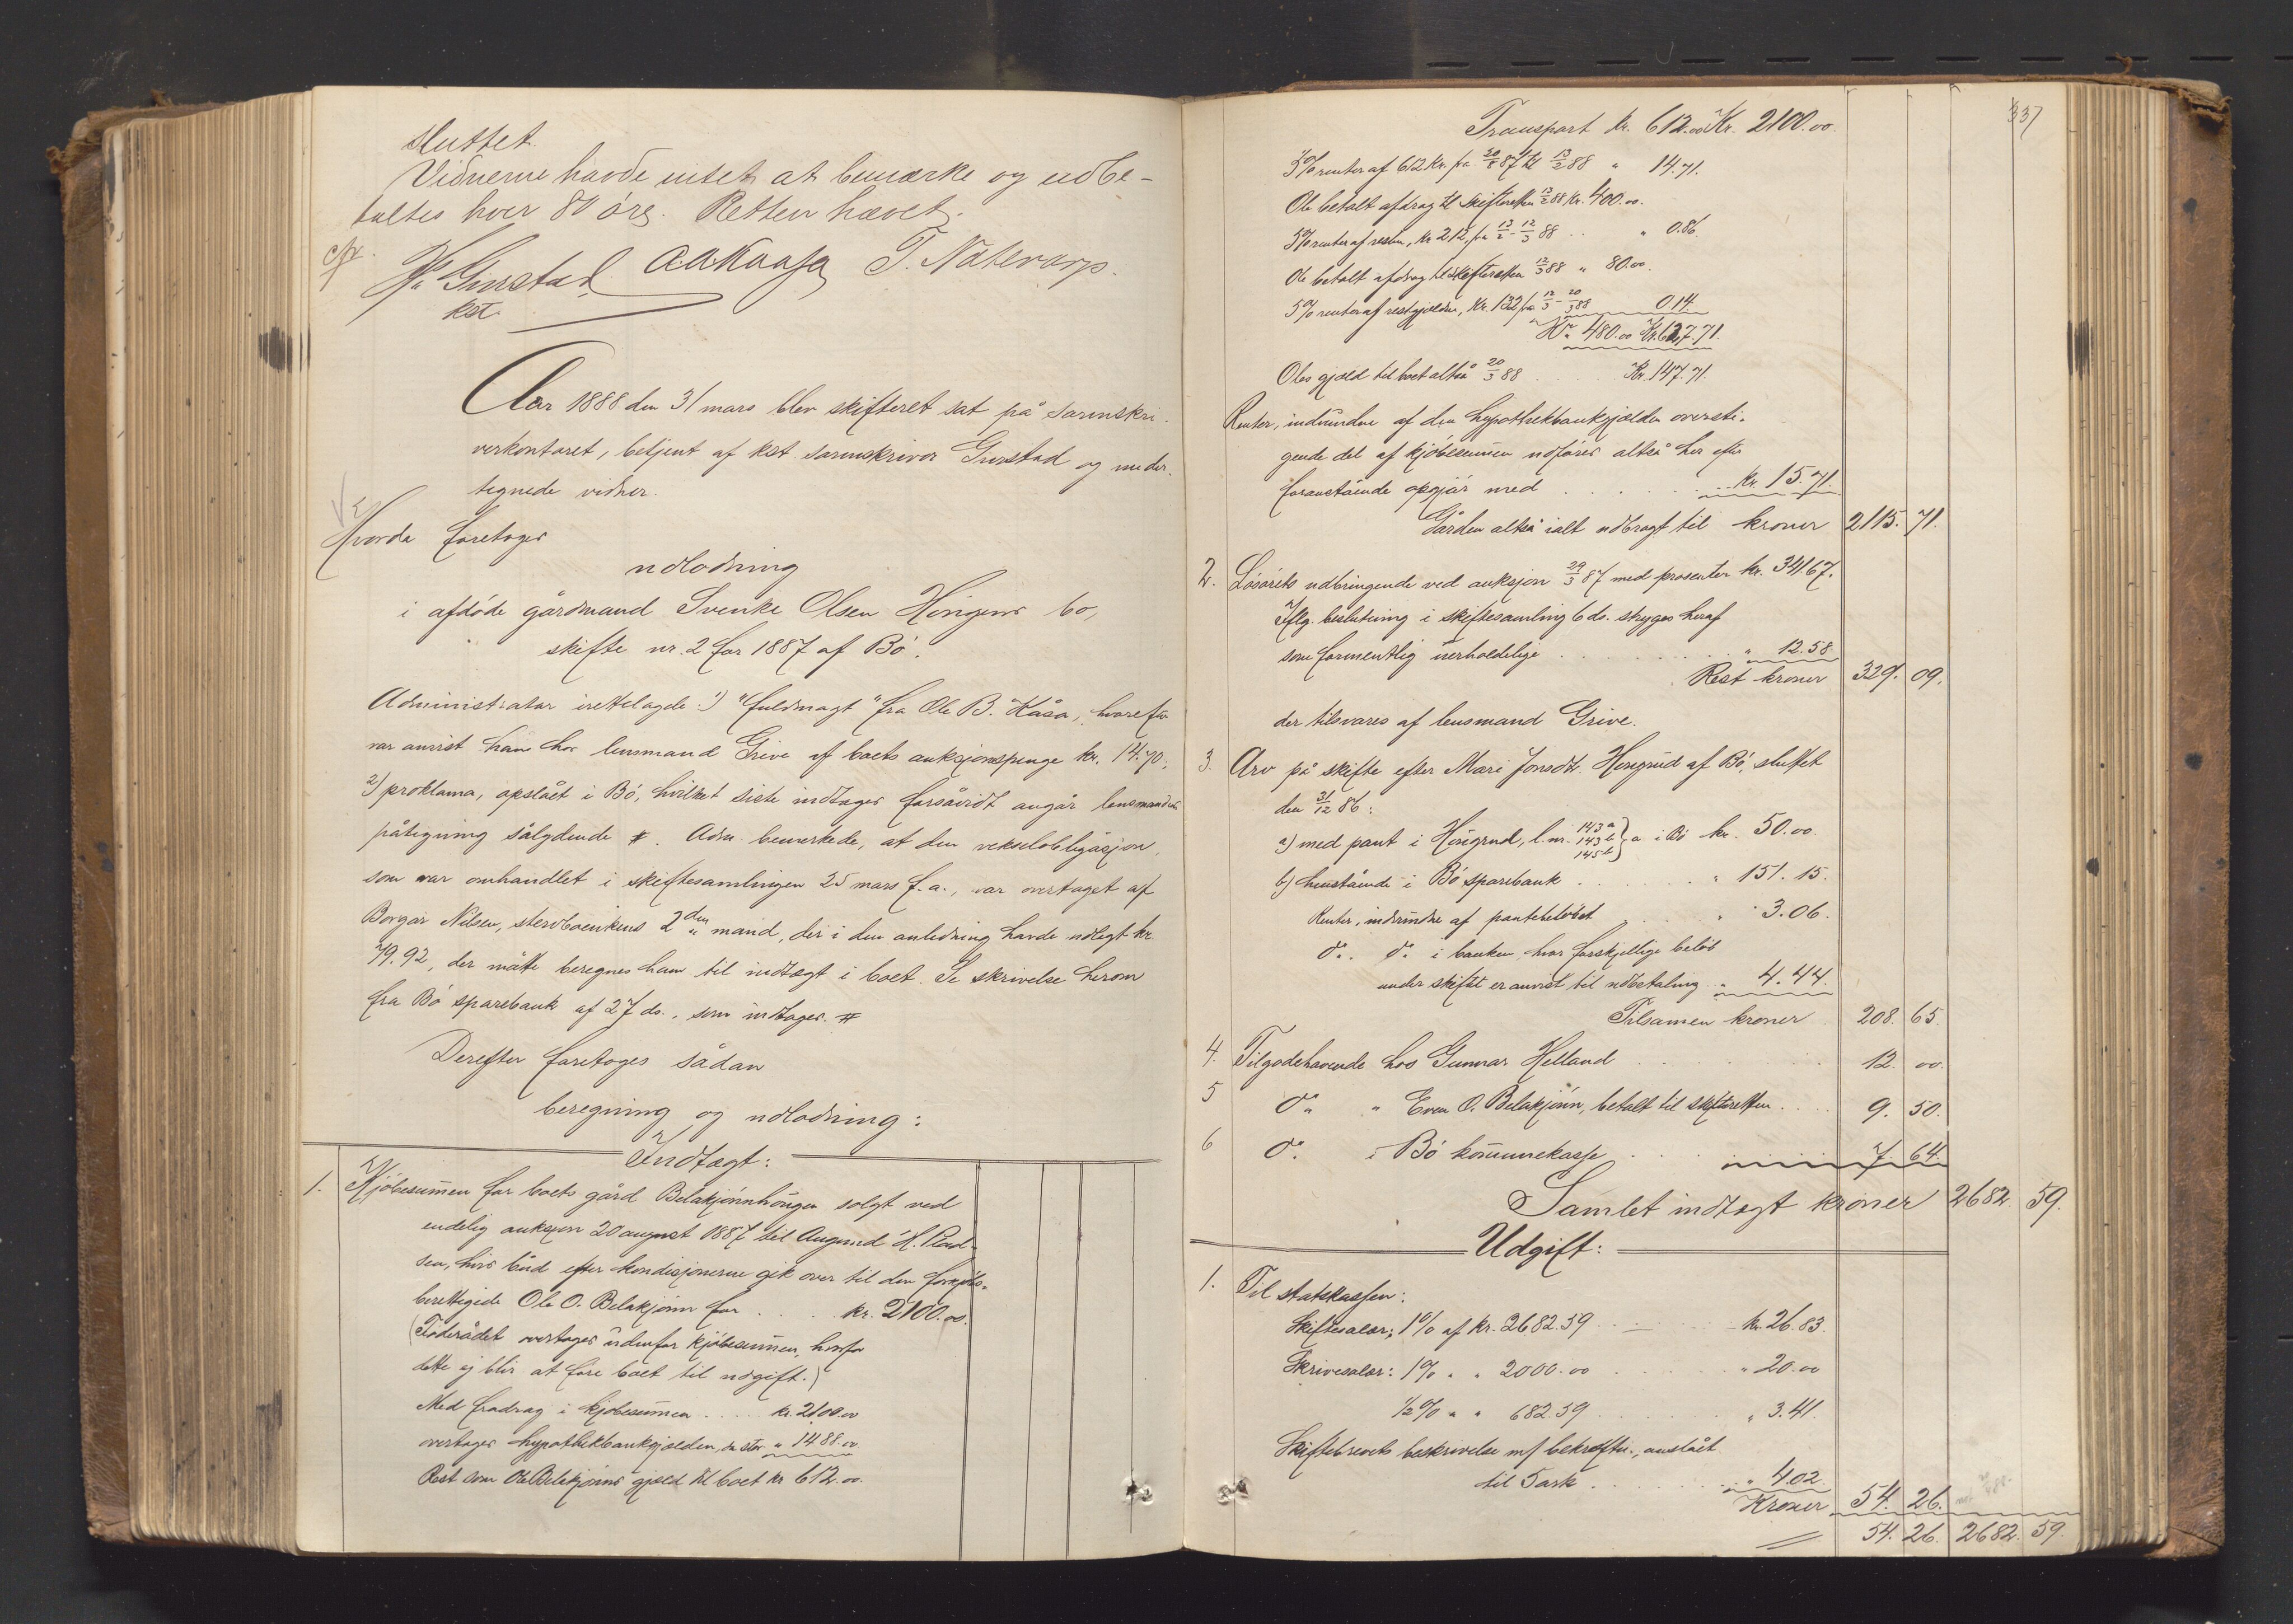 sluttet.
Vidnerne havde intet at bemærke og udbe-
taltes hver 80 öre. Retten hævet.
Gurstad A.A. Kaasa T. Natevarp.
kst.
Aar 1888 den 31 mars blev skifteret sat på sorenskri-
verkontoret, betjent af kst. sorenskriver Gurstad og under-
tegnede vidner.
Hvorda foretoges
udlodning
i afdöde gårdmand Svenke Olsen Höigens bo,
skifte nr. 2 for 1887 af Bö.
Administrator irettelagde: 1) "fuldmagt" fra Ole B. Kåsa, hvorefter
var anvist ham hos lensmand Grive af boets auksjonspenge kr. 14.70,
2) proklama, opslået i Bö, hvilket siste indtages forsåvidt angår lensmandens
påtegning sålydende #. Adm. bemerkede, at den vekselobligasjon,
som var omhandlet i skiftesamlingen 25 mars f.a., var overtaget af
Borgar Nilsen, stervboenkens 2den mand, der i den anledning havde udlegt kr.
79.92, der måtte beregnes ham til indtægt i boet. Se skrivelse herom
fra Bö sparebank af 27 ds., som indtages. #
Derefter foretoges sådan
beregning og udlodning:
Indtægt:
1. Kjöbesummen for boets gård Belakjönnhaugen solgt ved
endelig auksjon 20 august 1887 til Augund H.
sen, hvis bud efter kondisjonerne gik over til den forkjöbs-
berettigede Ole O. Belakjönn for . . . kr. 2100.00.
(Föderådet overtages udenfor kjöbesummen, hvorfor
dette ej blir at före boet til udgift.)
Med fradrag i kjöbesummen . . . kr. 2100.00
overtages hypothekbankgjælden, der stor " 1488.00
Rest som Ole Belakjönns gjæld til boet kr. 612.00
337
Transport kr. 612.00 Kr. 2100.00.
5% renter af 612 kr. fra 20/8 87 til 13/2 88 " 14.71.
Ole betalt afdrag til skifteretten 13/2 88 kr. 400.00.
5% renter af resten, kr. 212, fra 13/2 - 12/3 88 . . " 0.86.
Ole betalt afdrag til skifteretten 12/3 88 " 80.00.
5% renter af restgjælden, kr. 132 fra 12/3 - 20/3 88 0.14.
Kr. 480.00 Kr. 627.71.
Oles gjæld til boet altså 20/3 88 . . . Kr. 147.71.
Renter, indvundne af den hypothekbankgjælden oversti-
gende del af kjöbesummen udföres altså her efter
foranstående opgjör med . . . . . kr. 15.71.
Gården altså ialt udbragt til kroner 2115. 71.
2. Lösörets udbringende ved auksjon 29/3 87 med prosenter kr. 341.67.
Iflg. beslutning i skiftesamling 6 ds. stryges heraf
som formentlig uerholdelige . . . . " 12.58
Rest kroner 329. 09.
der tilsvares af lensmand Grive.
3. Arv på skifte efter Mari Jonsdt. Haugrud af Bö, sluttet
den 31/12 86:
a) med pant i Haugrud, l.nr. 143a 143b 145b } a i Bö kr. 50.00.
b) henstående i Bö sparebank . . . . " 151.15.
Renter, indvundne af pantebelöbet . . . " 3.06.
do. do. i banken hvor forskjellige belöb
under skiftet er anvist til udbetaling . " 4.44.
Tilsamen kroner 208. 65.
4. Tilgodehavende hos Gunnar Helland . . . 12. 00.
5 do. " Even O. Belakjönn, betalt til skifteretten . . . 9. 50.
6 do. i Bö kommunekasse . . . 7. 64.
Samlet indtægt kroner 2682. 59.
Udgift:
1. Til statskassen:
Skiftesalær: 1% af kr. 2682.59 . . . kr. 26.83.
Skrivesalær: 1% " " 2000.00 . . . " 20.00
1/2% " " 682.59 . . . " 3.41.
Skiftebrevets beskrivelse m/ bekræftn., anslået
til 5 ark . . . . " 4.02.
Kroner 54. 26.
54. 26. 2682. 59.